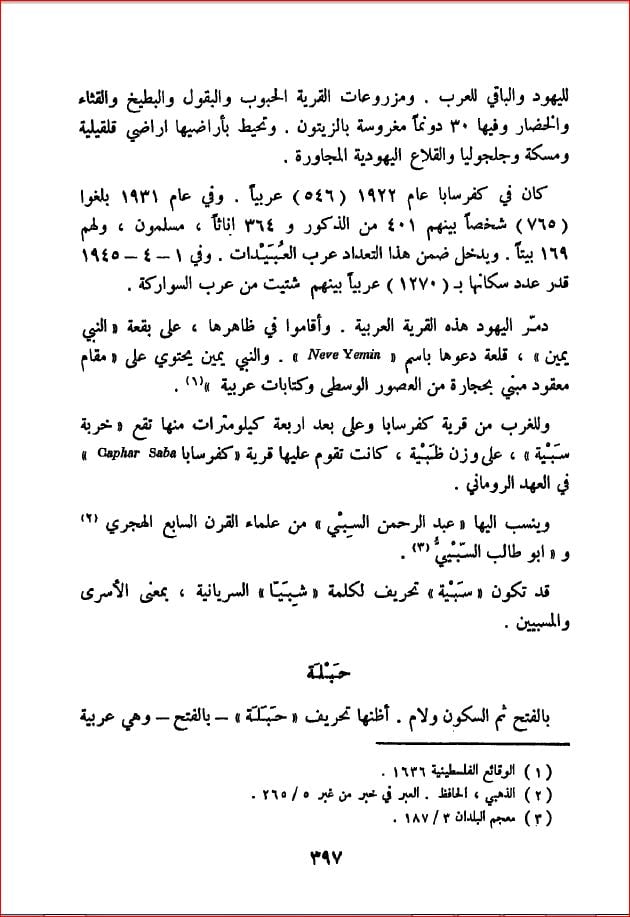 لليهود والباقي للعرب . ومزروعات القرية الحبوب والبقول والبطيخ والقثاء
والخضار وفيها ٣٠ دونماً مغروسة بالزيتون . وتحيط بأراضيها اراضي قلقيلية
ومسكة وجلجوليا والقلاع اليهودية المجاورة .
كان في كفرسابا عام ١٩٢٢ (٥٤٦) عربياً . وفي عام ١٩٣١ بلغوا
(٧٦٥) شخصاً بينهم ٤٠١ من الذكور و ٣٦٤ إناثاً ، مسلمون ، ولهم
١٦٩ بيتاً . ويدخل ضمن هذا التعداد عرب العُبَيْدات . وفي ١ – ٤ – ١٩٤٥
قدر عدد سكانها بـ (١٢٧٠) عربياً بينهم شتيت من عرب السواركة .
دمّر اليهود هذه القرية العربية . وأقاموا في ظاهرها ، على بقعة «النبي
يمين» ، قلعة دعوها باسم « Neve Yemin » . والنبي يمين يحتوي على «مقام
معقود مبني بحجارة من العصور الوسطى وكتابات عربية »(١) .
وللغرب من قرية كفرسابا وعلى بعد اربعة كيلومترات منها تقع «خربة
سَبْيَة» ، على وزن ظَبْيَة ، كانت تقوم عليها قرية «كفرسابا Caphar Saba »
في العهد الروماني .
وينسب اليها «عبد الرحمن السِبْي» من علماء القرن السابع الهجري (٢)
و « ابو طالب السّبْيِيُّ» (٣) .
قد تكون «سَبْيَة» تحريف لكلمة «شِبَيَا» السريانية ، بمعنى الأسرى
والمسبيين .
حَبْلَة
بالفتح ثم السكون ولام . أظنها تحريف «حَبَلَة» – بالفتح – وهي عربية
(١) الوقائع الفلسطينية ١٦٣٦ .
(٢) الذهبي ، الحافظ . العبر في خبر من غبر ٥ / ٢٦٥ .
(٣) معجم البلدان ٣ / ١٨٧ .
٣٩٧